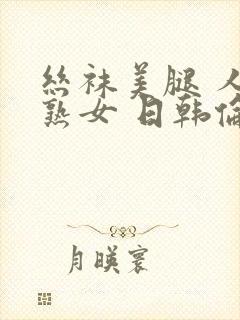 丝袜美腿 人
熟女 日韩倫
月暎寰